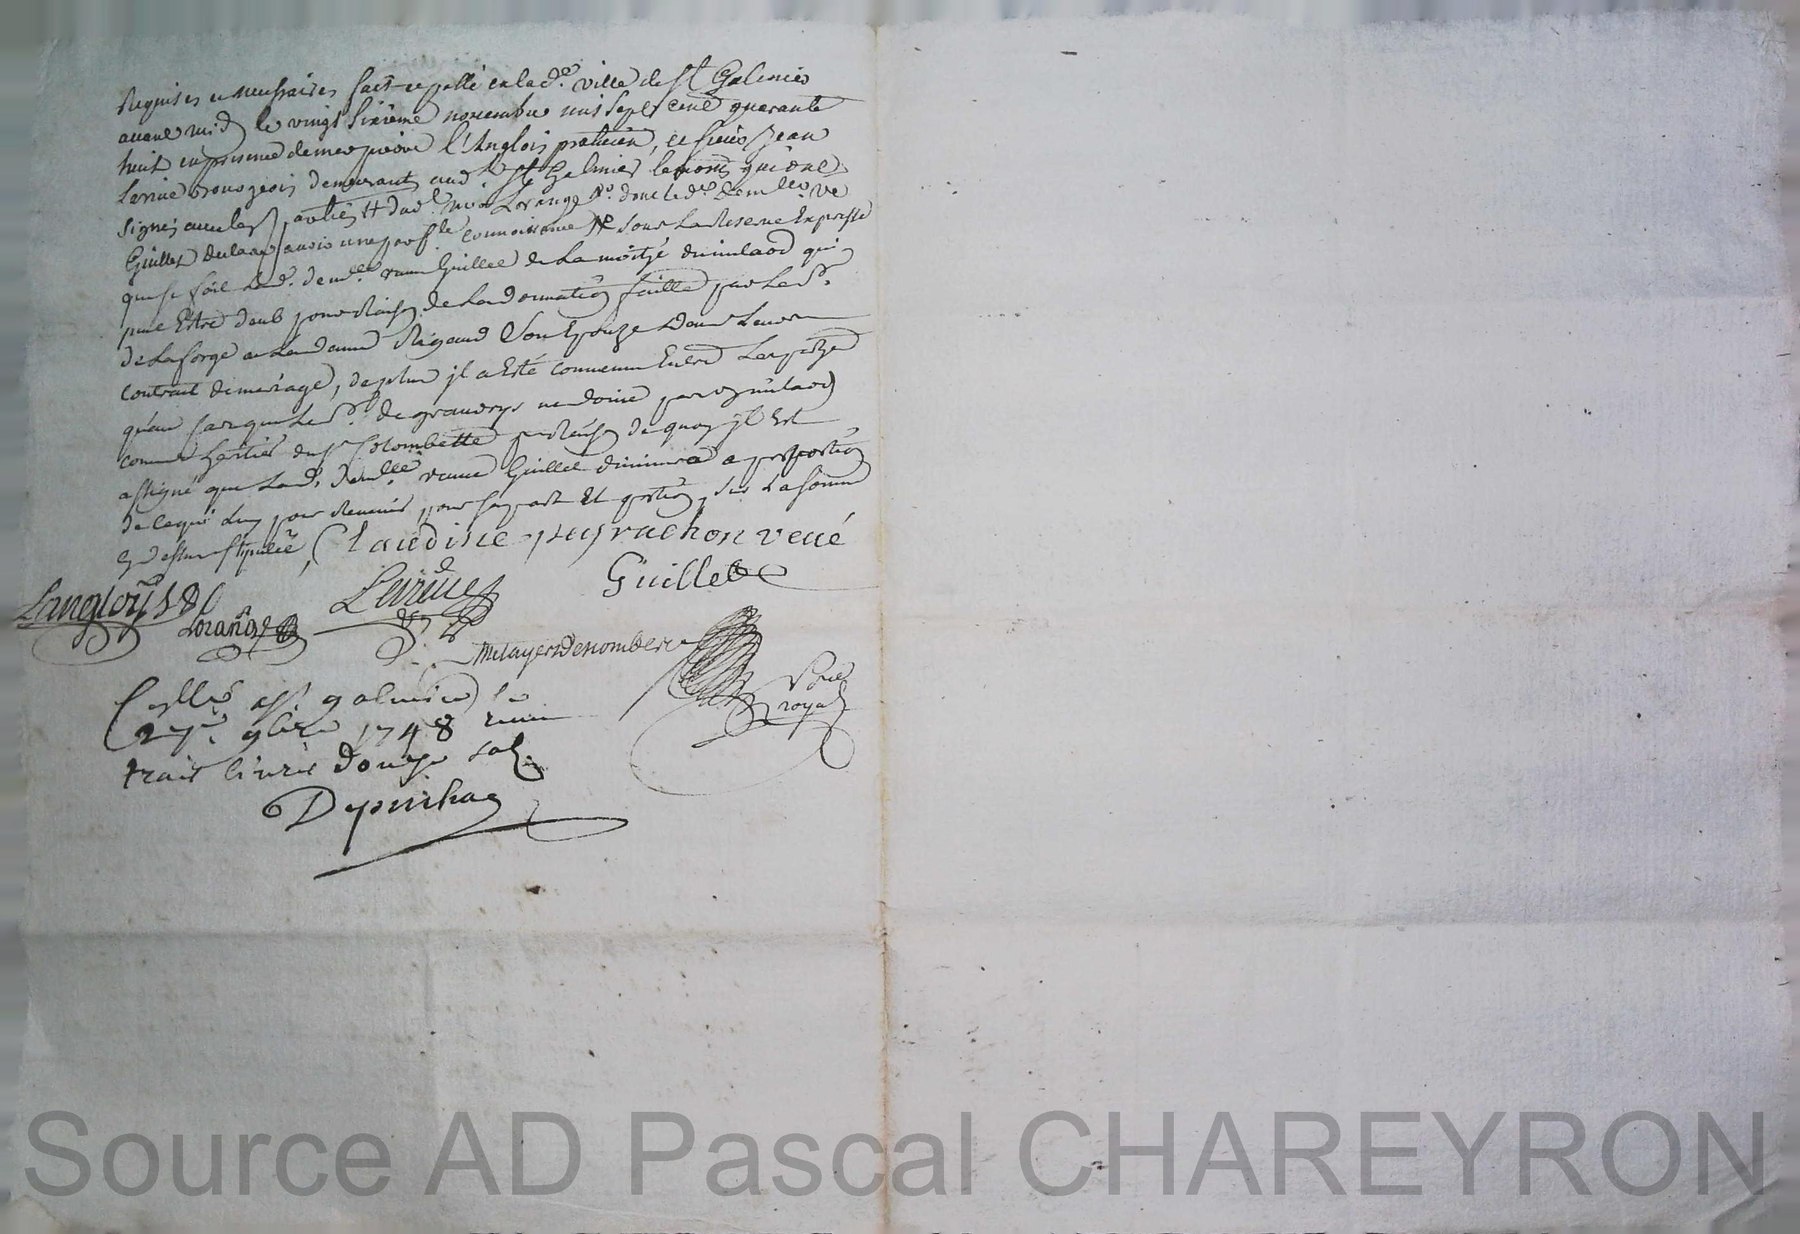 Requises et necessaires fait et passé en lad.e ville de St Galmier
avant midy le vingt sixieme novembre mil sept cent quarante
huit en presence de me pierre l'Anglois praticien, et sieur Jean
Larrive bourgeois demeurants aud. St Galmier temoins qui ont
signés avec les parties & dud. me Lorange No. dont led. demlle. ve
Guillet declare avoir une parf.te connoissance sous La Reserve Expresse
que se fait Lad. demlle. veuve Guillet de La moitié du milaod qui
peut Estre deub pour Raison de La donnation faitte par Le Sr.
de Laforge a La dame Rigaud Son Epouze dans Leur
contrait de mariage, de plus jl a Esté convenu Entre Les partyes
qu'au cas que Le Sr. de grandrys ne doive pas
comme heritier du Sr Colombette pr Raison de quoy jl Est
assigné que Lad. demlle. veuve Guillet diminuera a proportion
de ce qui luy peut Revenir pour sa part Et portion, sur La somme
cy dessus stipulée, Claudine peyrachon veue
Guillet
Langloys
Lorange
Larrive
Metayer Denombre
Nore
royal
Conllé a St. galmier le
27e. 9bre 1748 reçu
trais livres douze sols
Depuichac
Source AD Pascal CHAREYRON